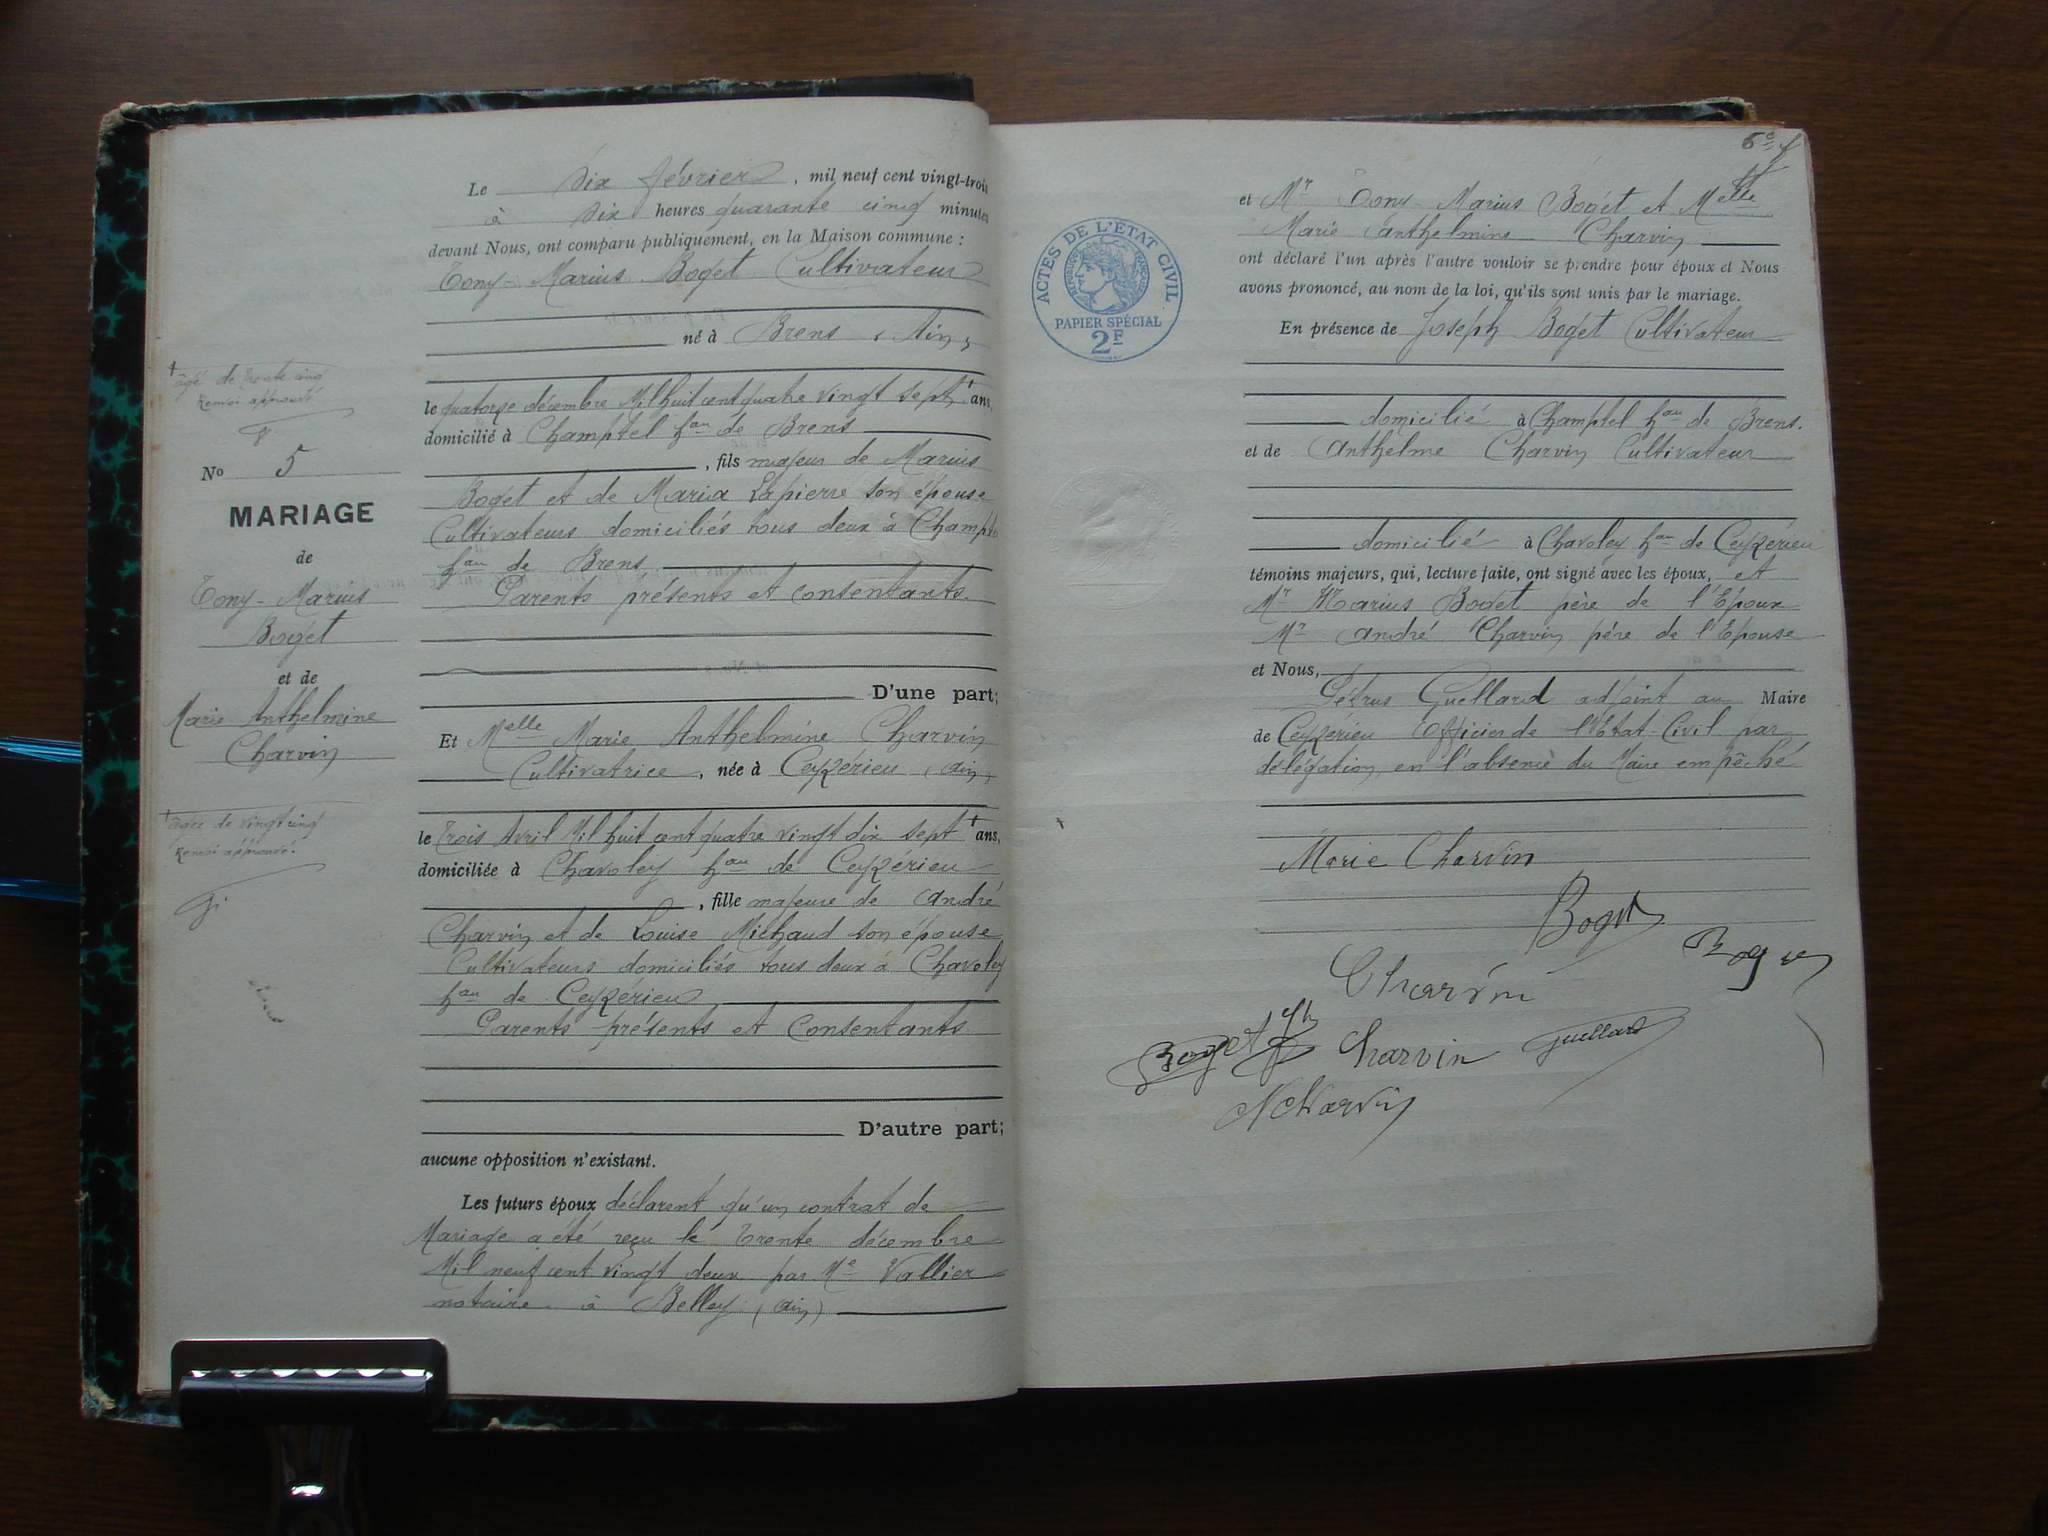 Le six février, mil neuf cent vingt-trois
à six heures quarante cinq minutes
devant Nous, ont comparu publiquement, en la Maison commune :
Tony-Marius Boget Cultivateur
né à Brens (Ain)
+ âgé de trente cinq
Renvoi approuvé
le quatorze décembre Mil huit cent quatre vingt sept + ans,
domicilié à Champtel hau de Brens
, fils majeur de Marius
Boget et de Maria Lapierre son épouse
Cultivateurs domiciliés tous deux à Champtel
hau de Brens,
Parents présents et consentants.
No 5
MARIAGE
de
Tony-Marius
Boget
et de
Marie Anthelmine
Charvin
D'une part;
Et Melle Marie Anthelmine Charvin
Cultivatrice, née à Ceyzérieu (Ain)
+ âgée de vingt cinq
Renvoi approuvé.
le trois Avril Mil huit cent quatre vingt dix sept + ans,
domiciliée à Chavoley hau de Ceyzérieu
, fille majeure de André
Charvin et de Louise Michaud son épouse
Cultivateurs domiciliés tous deux à Chavoley
hau de Ceyzérieu
Parents présents et Consentants
D'autre part;
aucune opposition n'existant.
Les futurs époux déclarent qu'un contrat de
Mariage a été reçu le trente décembre
Mil neuf cent vingt deux par Me Vallier
notaire à Belley (Ain)
ACTES DE L'ETAT CIVIL
REPUBLIQUE FRANÇAISE
PAPIER SPÉCIAL
2F
et Mr Tony-Marius Boget et Melle
Marie Anthelmine Charvin
ont déclaré l'un après l'autre vouloir se prendre pour époux et Nous
avons prononcé, au nom de la loi, qu'ils sont unis par le mariage.
En présence de Joseph Boget Cultivateur
domicilié à Champtel hau de Brens.
et de Anthelme Charvin Cultivateur
domicilié à Chavoley hau de Ceyzérieu
témoins majeurs, qui, lecture faite, ont signé avec les époux, et
Mr Marius Boget père de l'Epoux
Mr André Charvin père de l'Epouse
et Nous,
Pétrus Guellard adjoint au Maire
de Ceyzérieu Officier de l'Etat-Civil par
délégation, en l'absence du Maire empêché
Marie Charvin
Boget
Charvin
Boget
Charvin
Guellard
Charvin